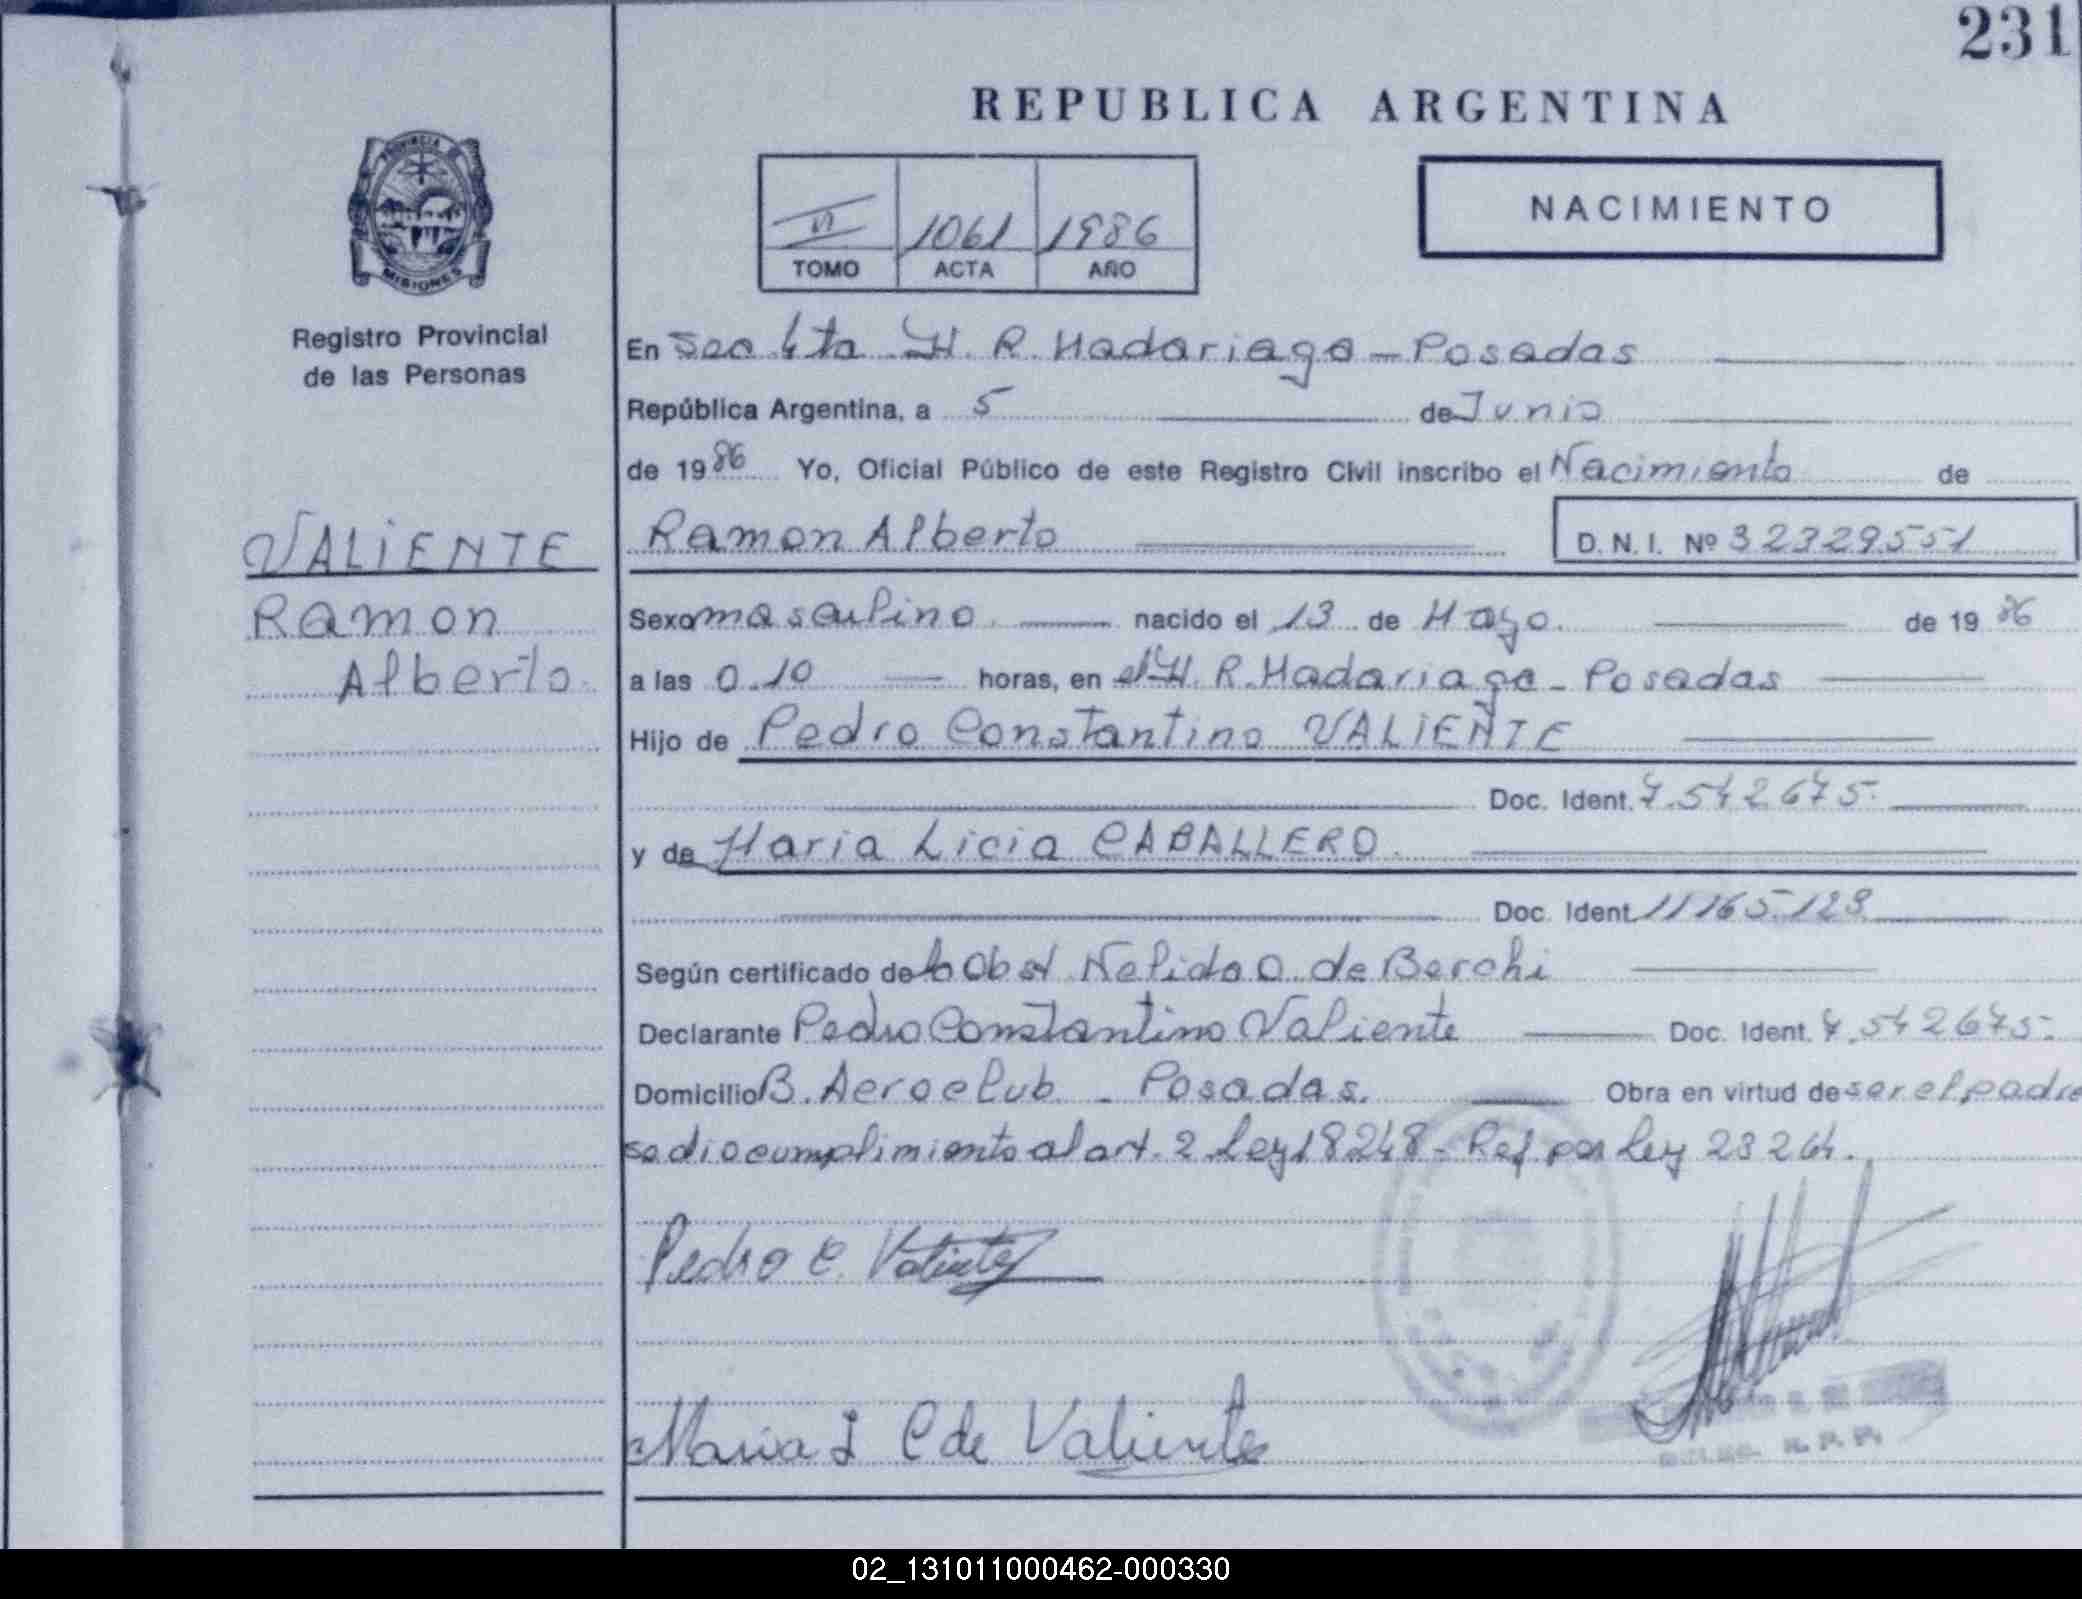 231
REPUBLICA ARGENTINA
PROVINCIA DE
MISIONES
Registro Provincial
de las Personas
VI 1061 1986
TOMO ACTA AÑO
NACIMIENTO
VALIENTE
Ramon
Alberto
En Sec 4ta H. R. Madariaga - Posadas
República Argentina, a 5 de Junio
de 1986 Yo, Oficial Público de este Registro Civil inscribo el Nacimiento de
Ramon Alberto D.N.I. Nº 32329551
Sexo masculino nacido el 13 de Mayo de 1986
a las 0.10 horas, en el H. R. Madariaga - Posadas
Hijo de Pedro Constantino VALIENTE
Doc. Ident. 7.542675.
y de Maria Licia CABALLERO
Doc. Ident. 11165.123
Según certificado de la Obst Nelida O. de Berchi
Declarante Pedro Constantino Valiente Doc. Ident. 7.542675.
Domicilio B. Aeroclub - Posadas. Obra en virtud de ser el padre
se dio cumplimiento al art. 2 Ley 18248 - Ref. por Ley 23264.
Pedro C. Valiente
Maria L C de Valiente
R. P. P.
02_131011000462-000330